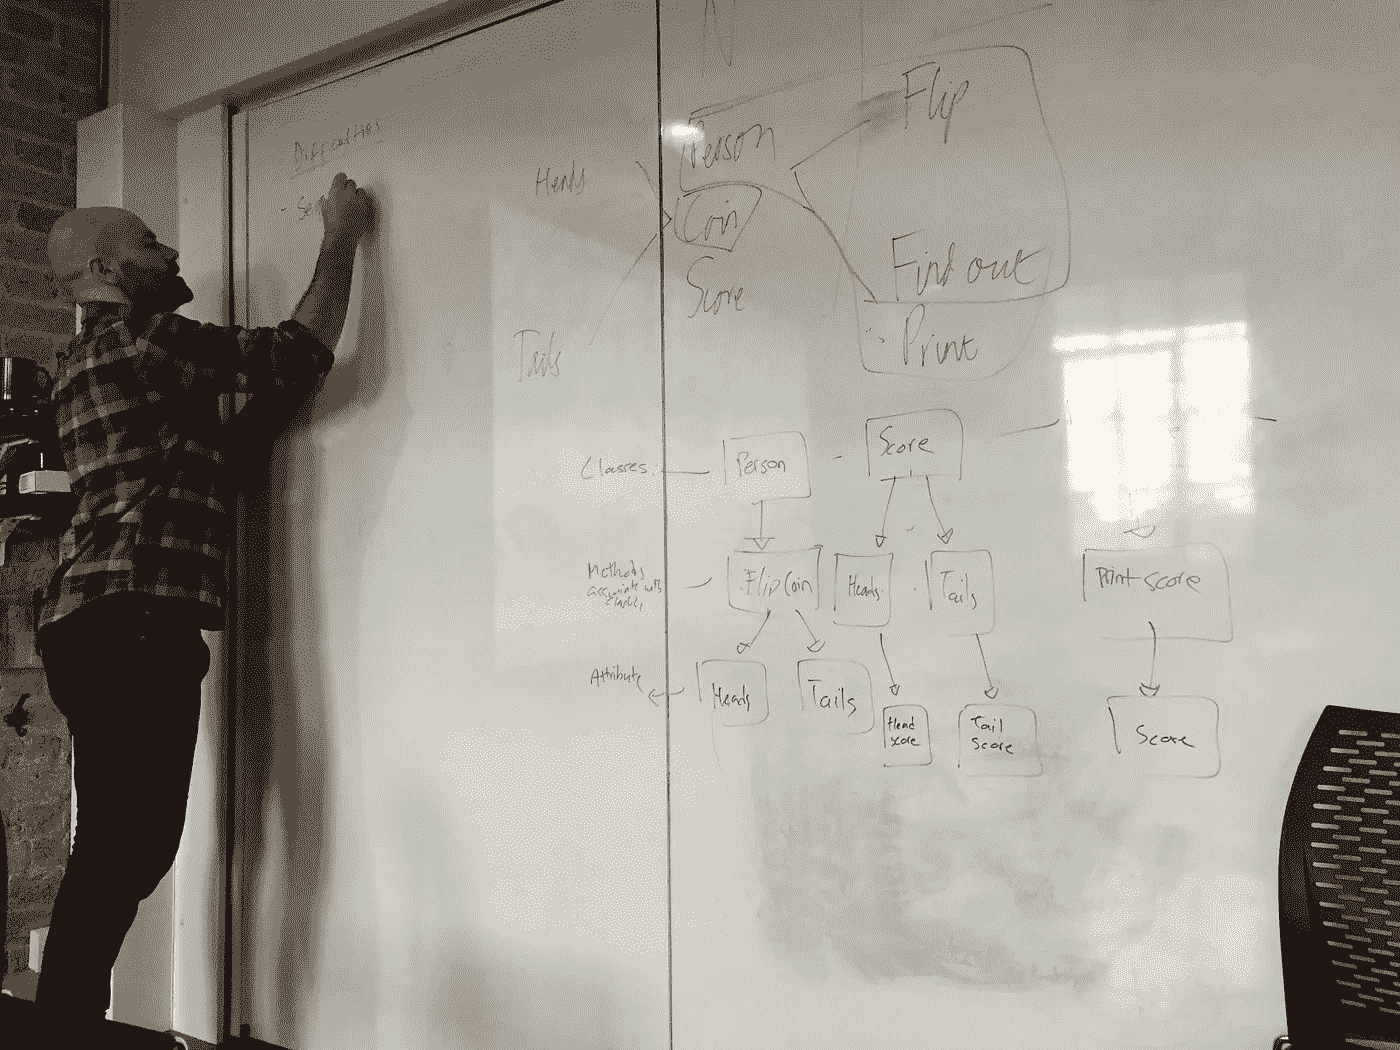 Difficulties
- Se
Heads
Tails
Person
Coin
Score
Flip
Find out
Print
Classes
Person
Score
Methods
associate with
Flip Coin
Heads
Tails
Print Score
Attribute
Heads
Tails
Head
score
Tail
Score
Score